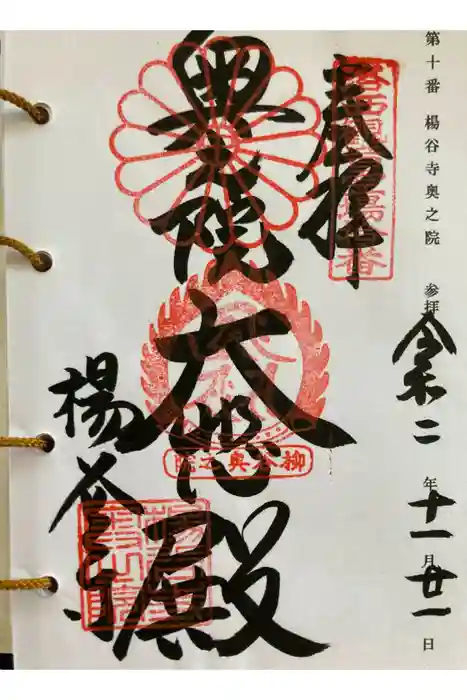 第十番 楊谷寺奥之院 参拝 令和二年十一月廿一日
奉拝
奥之院
大悲殿
柳谷奥之院
楊谷寺